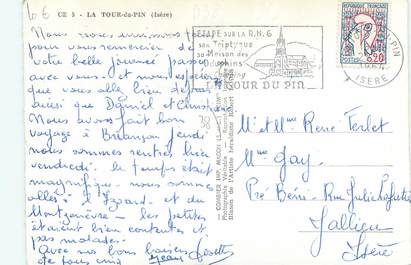 10 €
CE 5 - LA TOUR-du-PIN (Isère)
Nous nous
pour vous remercier de
votre belle journée passée
avec vous - et nous espérons
que vous allez bien
ainsi que Daniel et Christiane
Nous avons fait bon
voyage à Briançon jeudi
nous sommes rentrés hier
vendredi. le temps était
magnifique - nous sommes
allés à l'Izoard et du
Montgenèvre - les petites
étaient bien contentes et
pas malades.
avec nos bons baisers
de tous cinq
ETAPE SUR LA R.N. 6
son Triptyque
sa Maison des
Dauphins
LA TOUR DU PIN
ISERE
0,20
38
COMBIER IMP. MACON
Photographie Véritable - Reproduction
Blason de l'Artiste héraldiste Robert Louis
M et Mme René Ferlet
Mme Gay.
Pré Bénit - Rue Julie Lafute
Jallieu
Isère